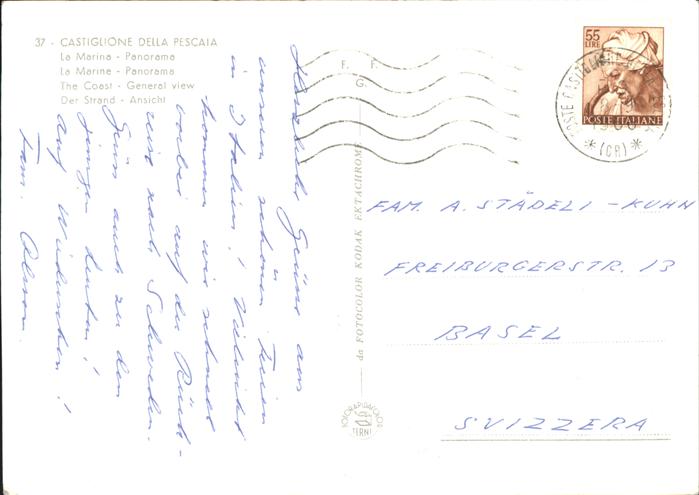 37 - CASTIGLIONE DELLA PESCAIA
La Marina - Panorama
La Marine - Panorama
The Coast - General view
Der Strand - Ansicht
Herzliche Grüsse aus
unseren schönen Ferien
in Italien! Vielleicht
kommen wir schnell
vorbei auf der Rück-
reise nach Schweden.
Grüss auch zu den
jungen Leuten!
auf Wiedersehen!
Fam.
da FOTOCOLOR KODAK EKTACHROME
TERNI
F. F.
G.
55
LIRE
POSTE ITALIANE
(GR)
FAM. A. STÄDELI - KUHN
FREIBURGERSTR. 13
BASEL
SVIZZERA